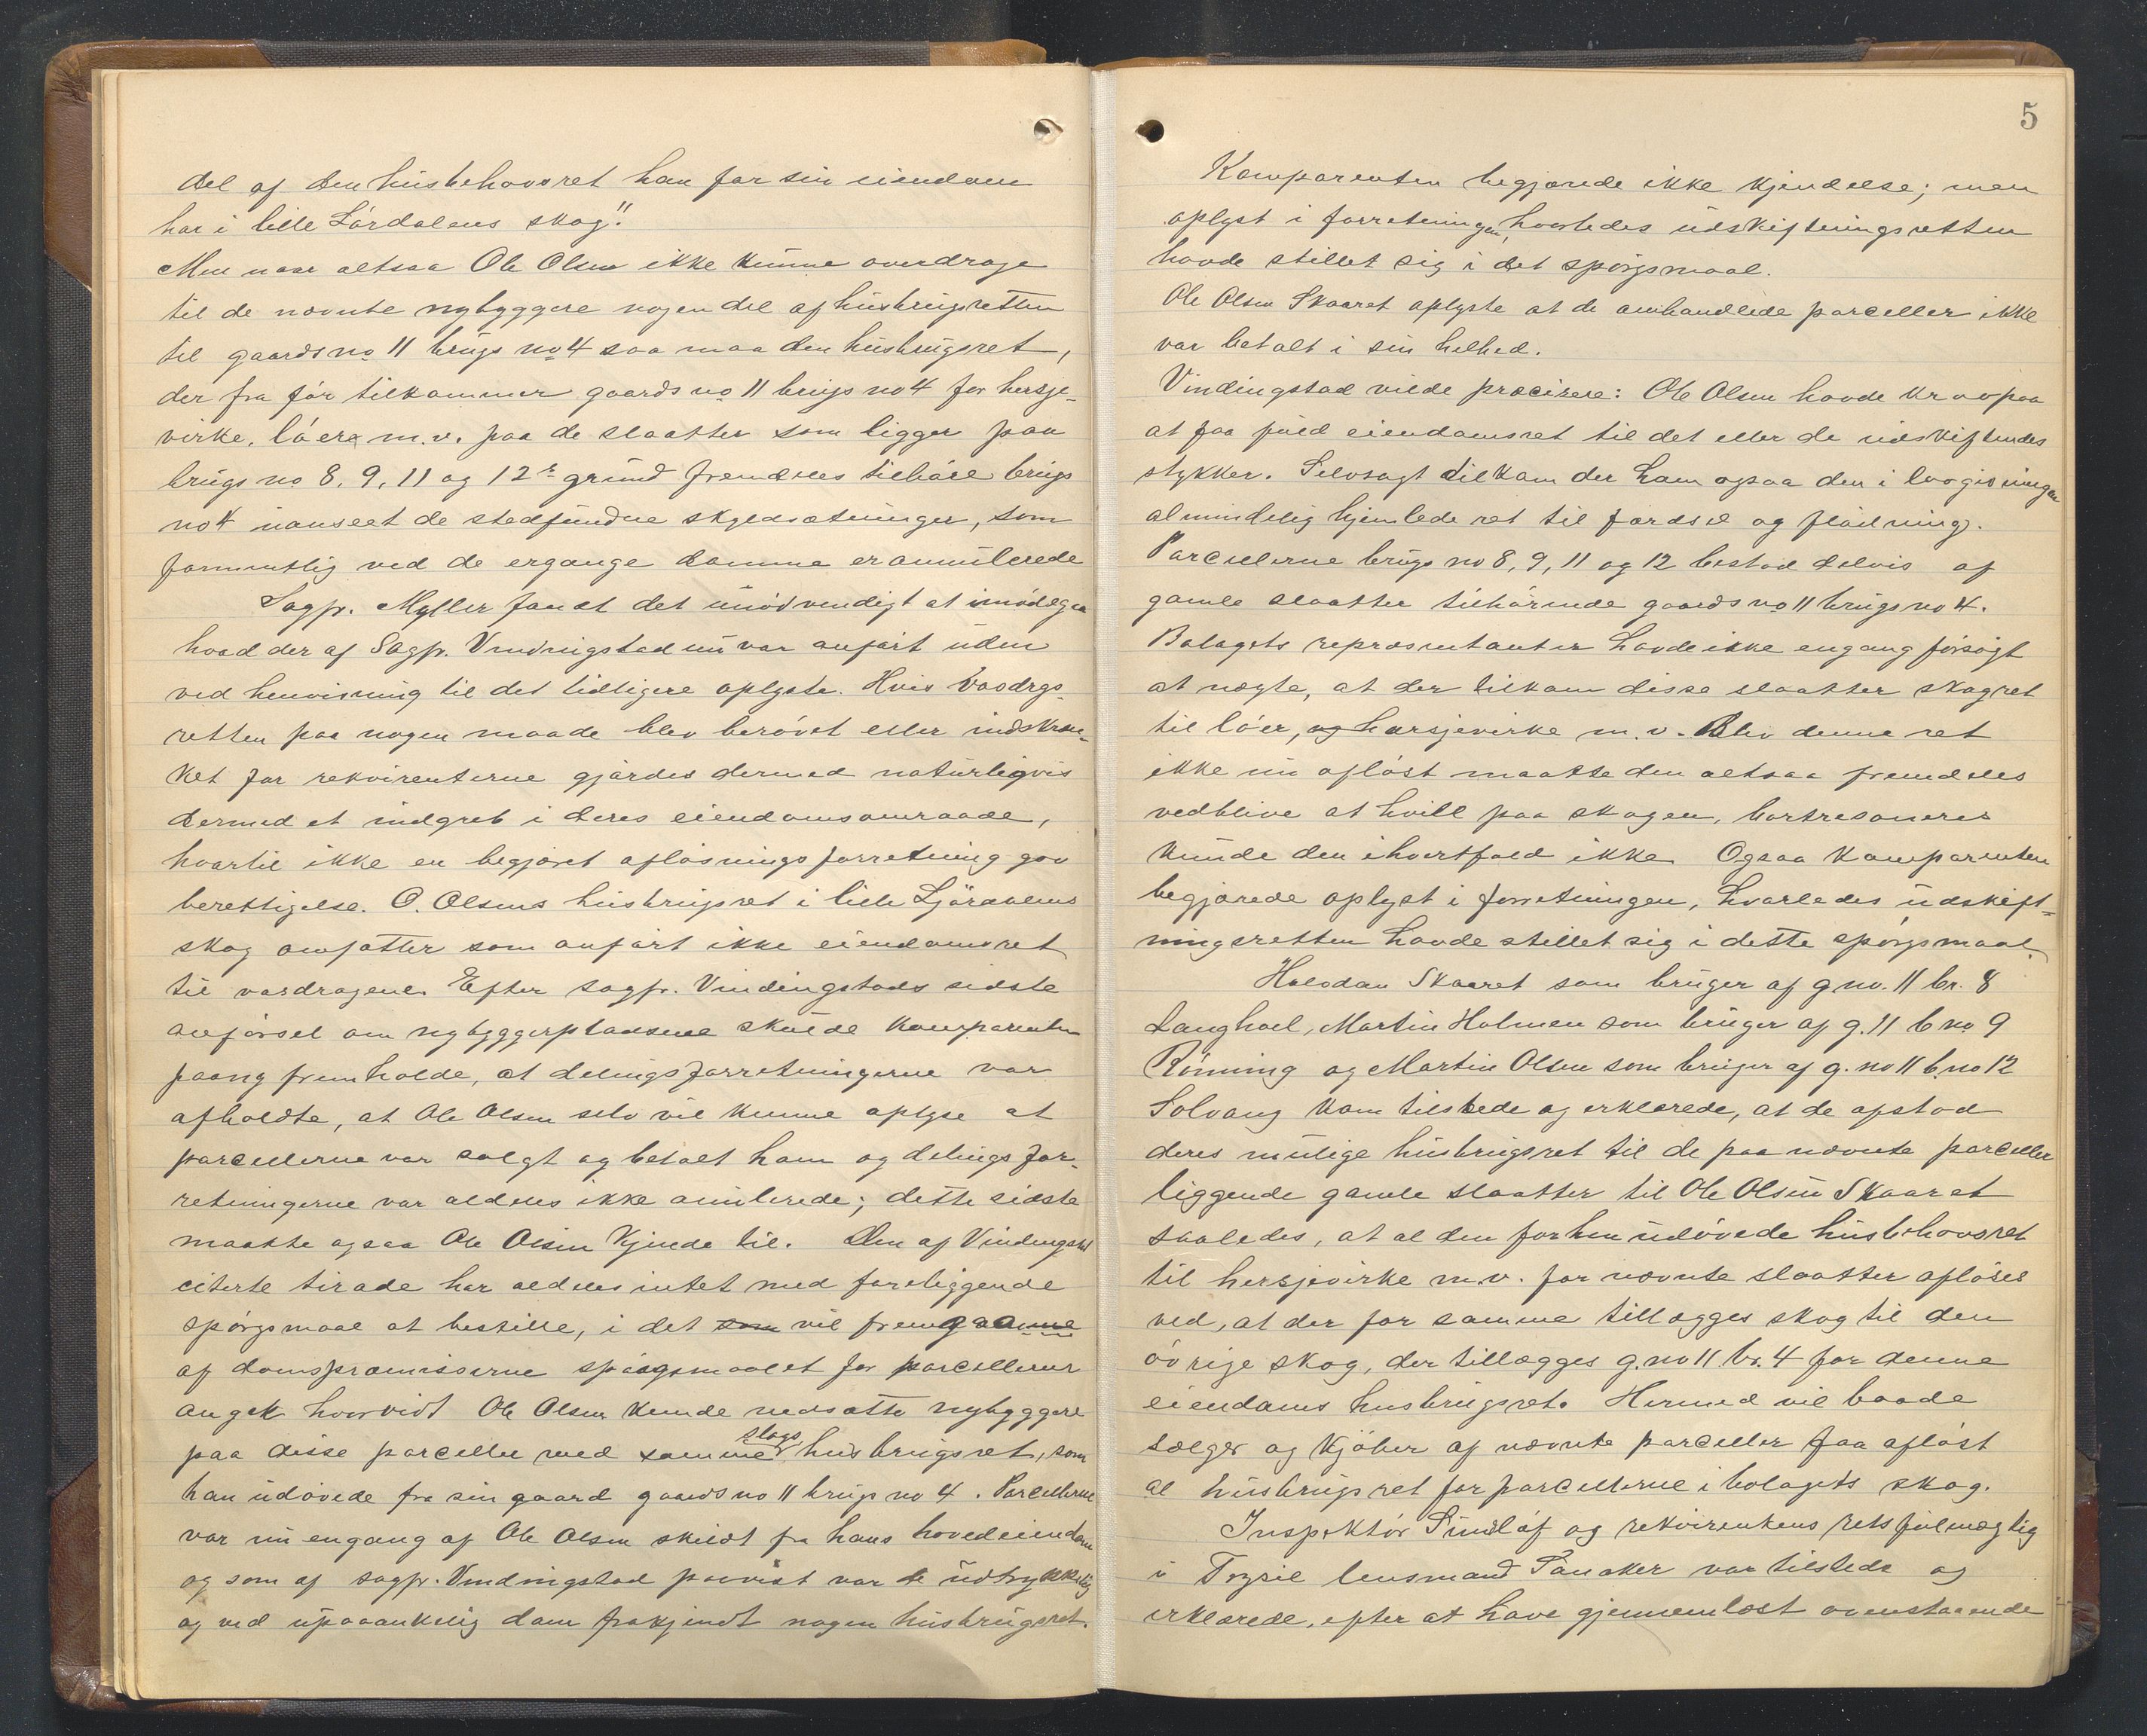 del af den husbehovsret han for sin eiendom
har i lille Lördalens skog".
Men naar altsaa Ole Olsen ikke kunne overdrage
til de nævnte nybyggere nogen del af husbrugsretten
til gaardsno 11 brugs no 4 saa maa den husbrugsret,
der fra før tilkommer gaards no 11 brugs no 4 for hersje-
virke, löer m.v. paa de slaatter som ligger paa
brugs no 8, 9, 11 og 12s grund fremdeles tilhöre brugs
no 4 uanseet de stedfundne skyldsætninger, som
formentlig ved de ergangne domme er annulerede
Sagfr. Myller fandt det unödvendigt at imödegaa
hvad der af Sagfr. Vindingstad nu var anfört uden
ved henvisning til det tidligere oplyste. Hvis vasdrags-
retten paa nogen maade blev berövet eller indskræn-
ket for rekvirenterne gjördes dermed naturligvis
dermed et indgreb i deres eiendomsomraade,
hvartil ikke en begjæret aflösningsforretning gav
berettigelse. O. Olsens husbrugsret i lille Ljördalens
skog omfatter som anfört ikke eiendomsret
til vasdragene. Efter sagfr. Vindingstads sidste
anförsel om nybyggerpladsene skulde komparenten
paany fremholde, at delingsforretningerne var
afholdte, at Ole Olsen selv vil kunne oplyse at
parcellerne var solgt og betalt ham og delingsfor-
retningerne var aldeles ikke anulerede; dette sidste
maatte ogsaa Ole Olsen kjende til. Den af Vindingstad
citerte tirade har aldeles intet med foreliggende
spörgsmaal at bestille, i det som vil fremgaa
af domspræmisserne spörgsmaalet for parcellerne
angik hvorvidt Ole Olsen kunde nedsætte nybyggere
paa disse parceller med samme slags husbrugsret, som
han udövede fra sin gaard gaards no 11 brugs no 4. Parcellerne
var nu engang af Ole Olsen skildt fra hans hovedeiendom
og som af sagfr. Vindingstad paavist var de udtrykkelig
og ved upaaankelig dom frakjendt nogen husbrugsret.
5
Komparenten begjærede ikke kjendelse; men
oplyst i forretningen, hvorledes udskiftningsretten
havde stillet sig i det spörgsmaal.
Ole Olsen Skaaret oplyste at de omhandlede parceller ikke
var betalt i sin helhed.
Vindingstad vilde præcisere: Ole Olsen havde krav paa
at faa fuld eiendomsret til det eller de udskiftendes
stykker. Selvsagt tilkom der ham ogsaa den i lovgivningen
almindelig hjemlede ret til færdsel og flödning.
Parcellerne brugs no 8, 9, 11 og 12 bestod delvis af
gamle slaatter tilhörende gaards no 11 brugs no 4.
Bolagets repræsentanter havde ikke engang forsögt
at nægte, at der tilkom disse slaatter skogret
til löer, og hersjevirke m.v. Blev denne ret
ikke nu aflöst maatte den altsaa fremdeles
vedblive at hvile paa skogen, bortresoneres
kunde den ihvertfald ikke. Ogsaa komparenten
begjærede oplyst i forretningen, hvorledes udskift-
ningsretten havde stillet sig i dette spörgsmaal.
Halvdan Skaaret som bruger af gno. 11 br. 8
Langhoel, Martin Holmen som bruger af g. 11 b no 9
Rönning og Martin Olsen som bruger af g. no 11 b. no 12
Solvang kom tilstede og erklærede, at de afstod
deres mulige husbrugsret til de paa nævnte parceller
liggende gamle slaatter til Ole Olsen Skaaret
saaledes, at al den forhen udövede husbehovsret
til hersjevirke m.v. for nævnte slaatter aflöses
ved, at der for samme tillægges skog til den
övrige skog, der tillægges g. no 11 br. 4 for denne
eiendoms husbrugsret. Hermed vil baade
sælger og kjöber af nævnte parceller faa aflöst
al husbrugsret for parcellerne i bolagets skog.
Inspektör Sundlöf og rekvirentens retsfuldmægtig
i Trysil lensmand var tilstede og
erklærede, efter at have gjennemlæst ovenstaaende